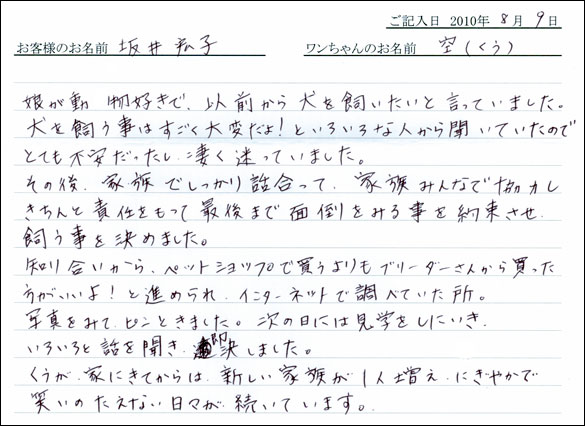 ご記入日 2010年 8月 9日
お客様のお名前 坂井 宏子 ワンちゃんのお名前 空(くう)
娘が動物好きで、以前から犬を飼いたいと言っていました。
犬を飼う事はすごく大変だよ!といろいろな人から聞いていたので
とても不安だったし凄く迷っていました。
その後、家族でしっかり話合って、家族みんなで協力し
きちんと責任をもって最後まで面倒をみる事を約束させ、
飼う事を決めました。
知り合いから、ペットショップで買うよりもブリーダーさんから買った
方がいいよ!と進められ、インターネットで調べていた所。
写真をみて、ピンときました。次の日には見学をしにいき、
いろいろと話を聞き、即決しました。
くうが、家にきてからは、新しい家族が1人増え、にぎやかで
笑いのたえない日々が続いています。